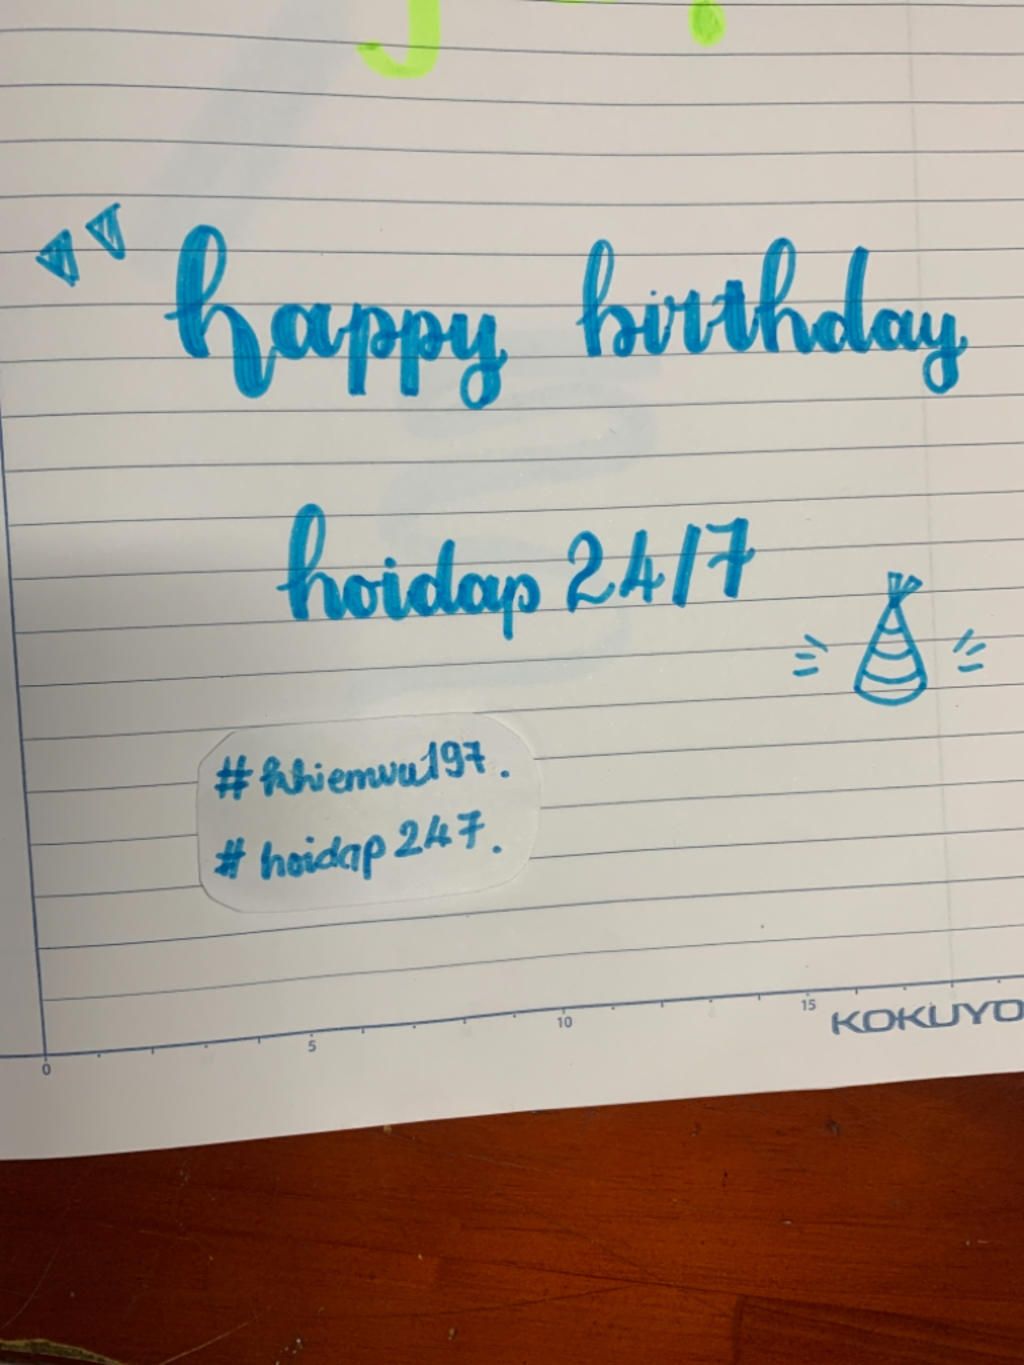 happy birthday
hoidap 24/7
#khiemvu197.
# hoidap 247.
0 5 10 15
KOKUYO